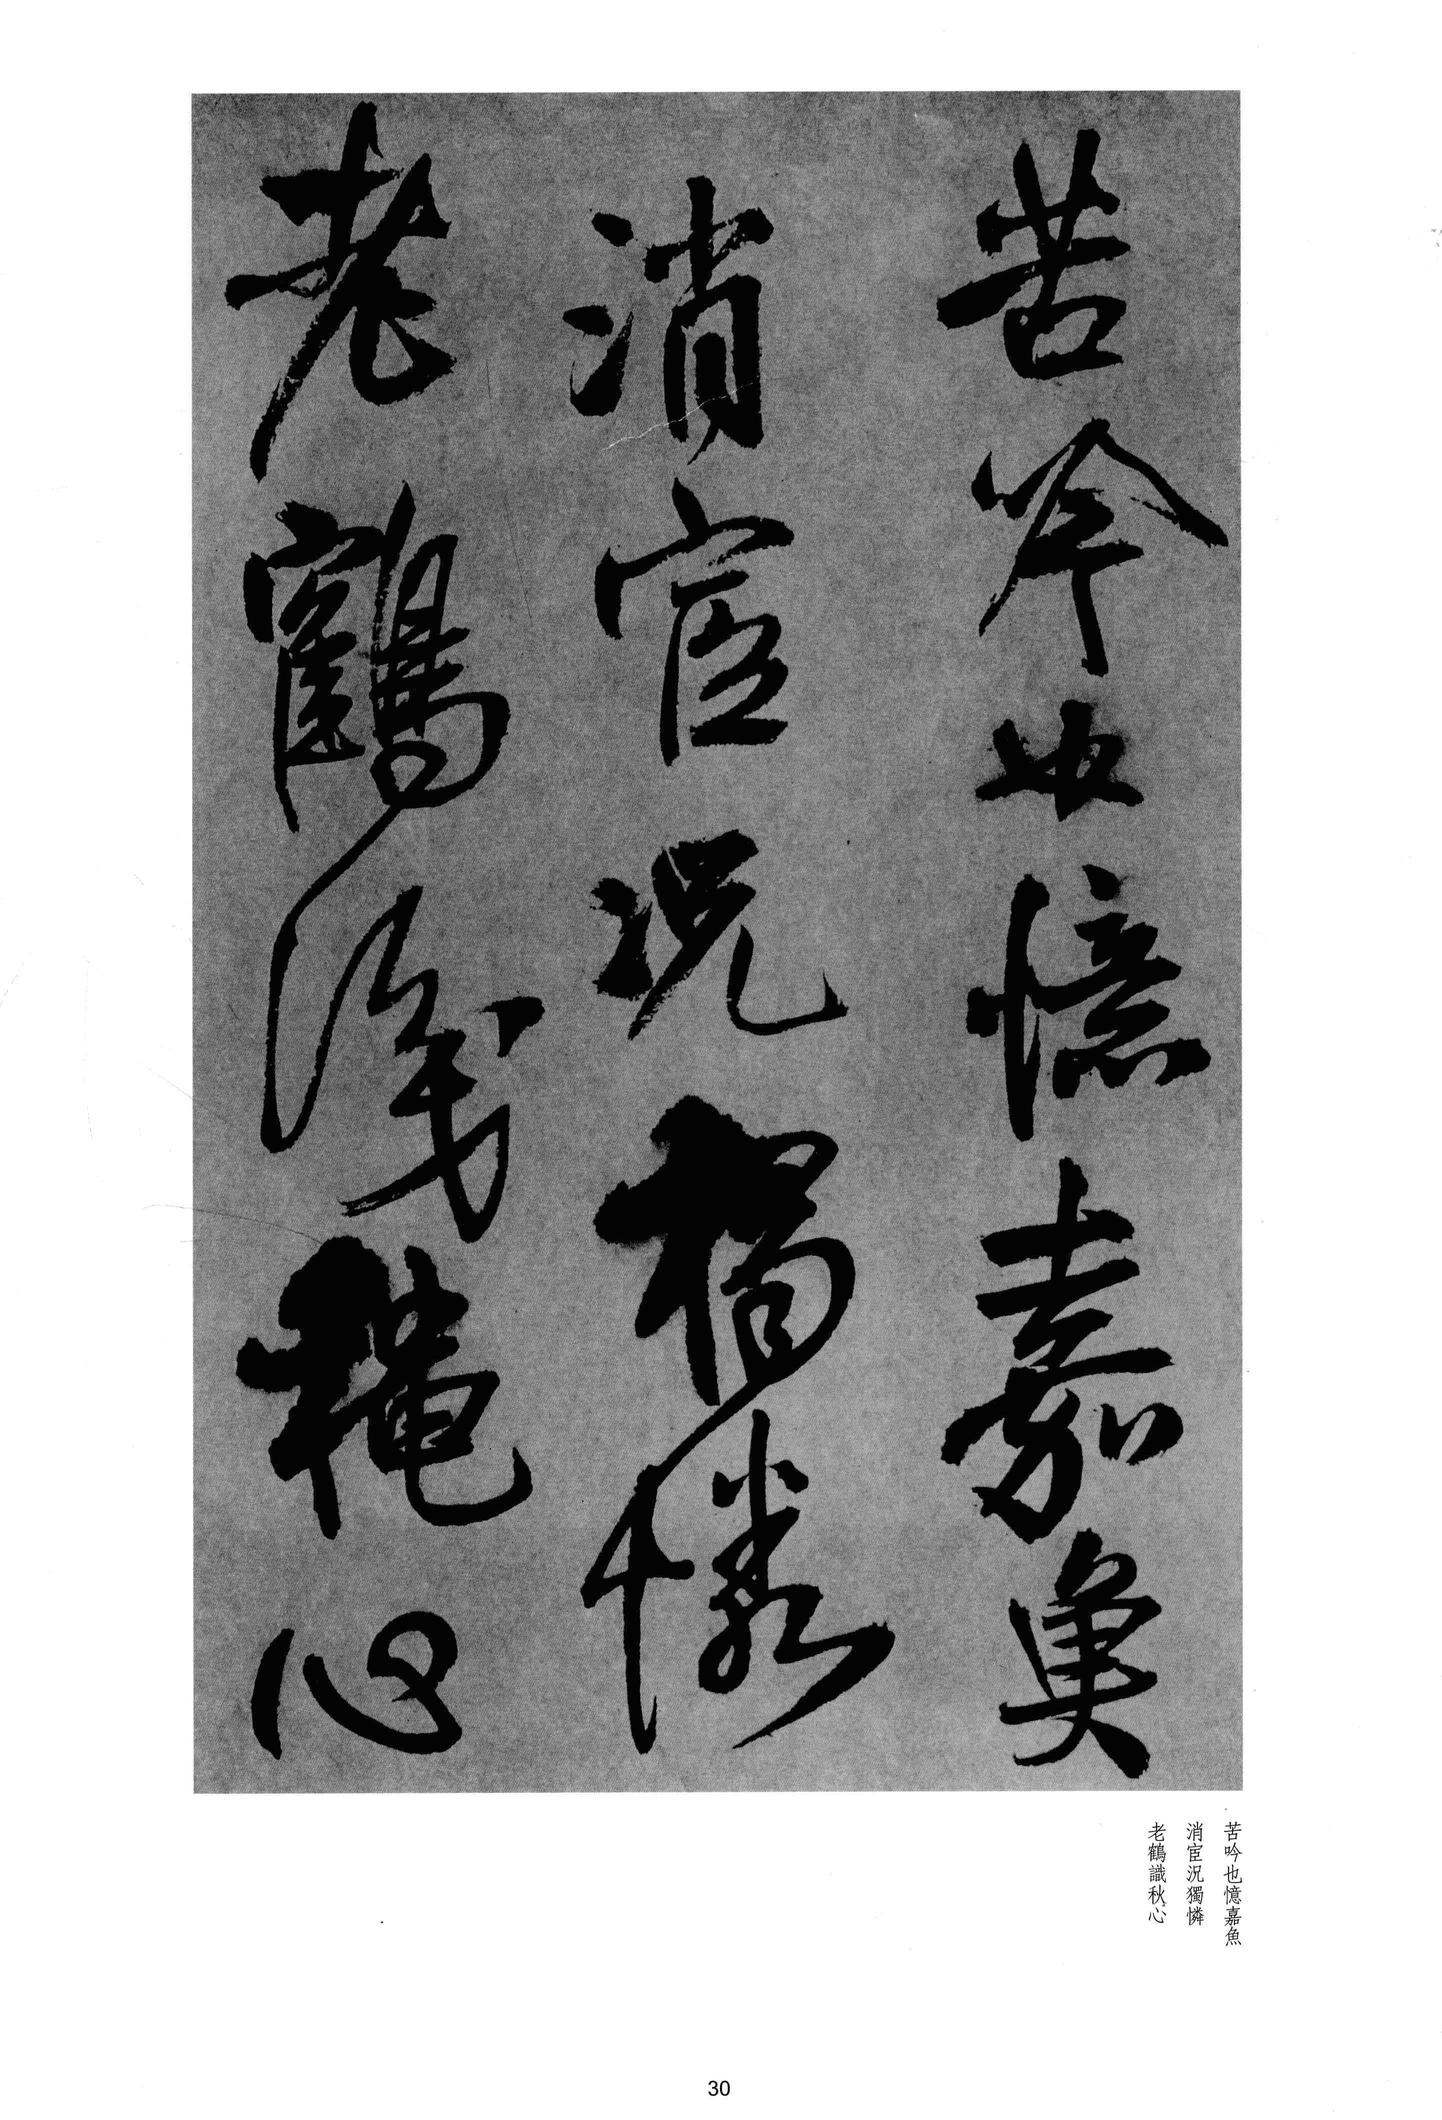 苦吟也憶嘉魚
消宦況獨憐
老鶴識秋心
苦吟也憶嘉魚
消宦況獨憐
老鶴識秋心
30